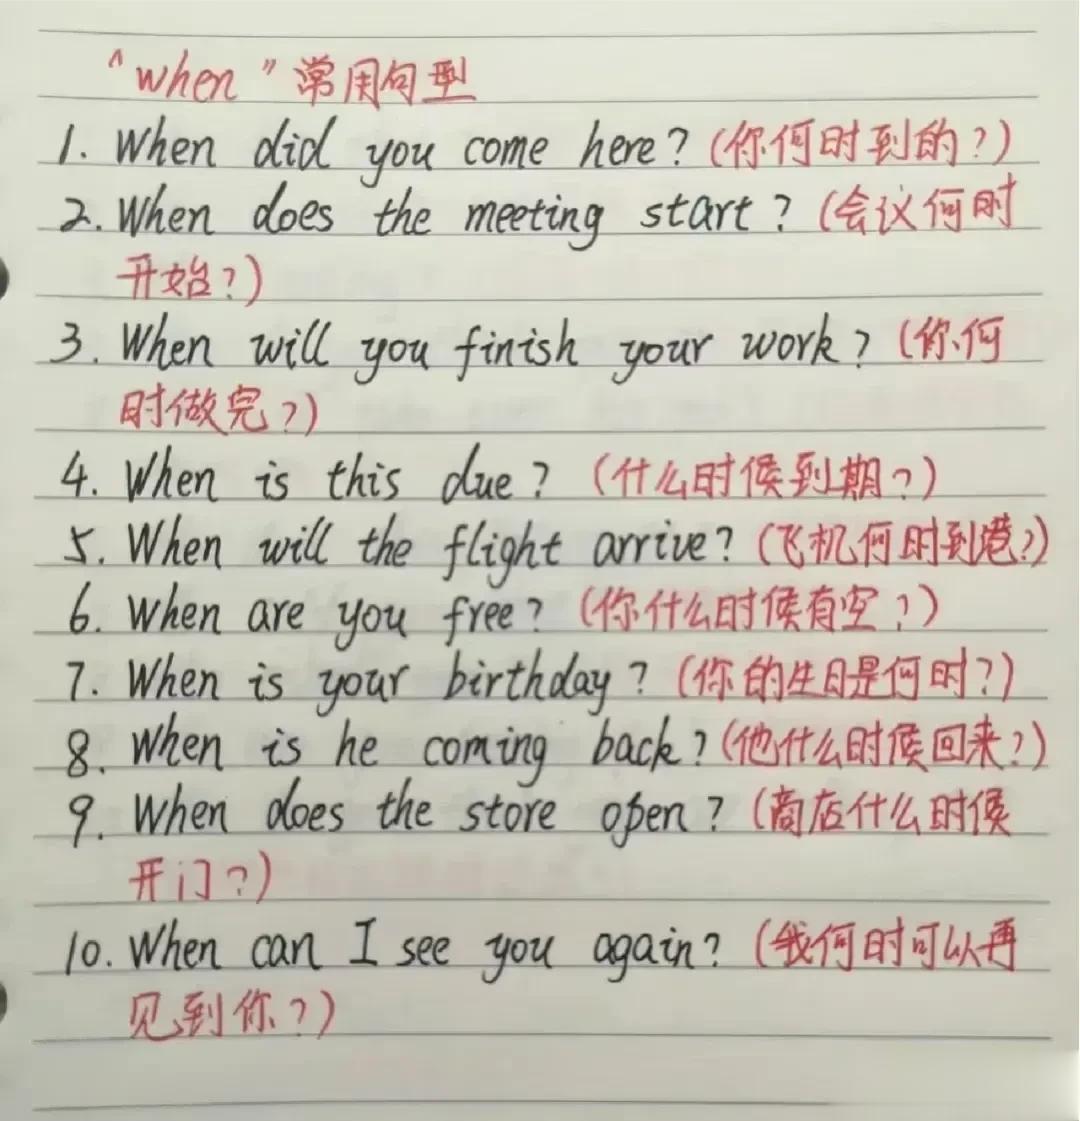 "when"常用句型
1. When did you come here? (你何时到的?)
2. When does the meeting start? (会议何时
开始?)
3. When will you finish your work? (你何
时做完?)
4. When is this due? (什么时候到期?)
5. When will the flight arrive? (飞机何时到港?)
6. When are you free? (你什么时候有空?)
7. When is your birthday? (你的生日是何时?)
8. When is he coming back? (他什么时候回来?)
9. When does the store open? (商店什么时候
开门?)
10. When can I see you again? (我何时可以再
见到你?)